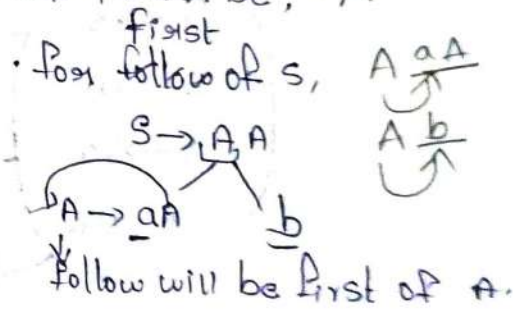 first
• for follow of S, A aA
S → A, A A b
A → aA b
follow will be first of A.